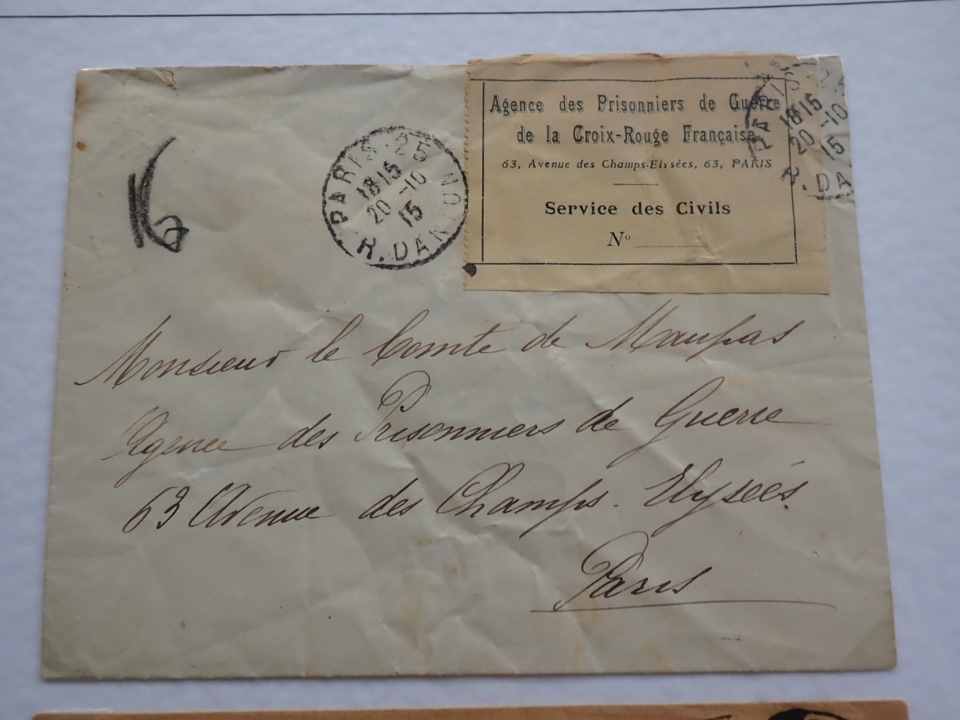 Agence des Prisonniers de Guerre
de la Croix-Rouge Française
63, Avenue des Champs-Elysées, 63, PARIS
Service des Civils
Nº
PARIS 25
1815
20-10
15
R. DAN
PARIS
1815
20-10
15
R. DA
16
Monsieur le Comte de Maupas
Agence des Prisonniers de Guerre
63 Avenue des Champs-Elyseés.
Paris